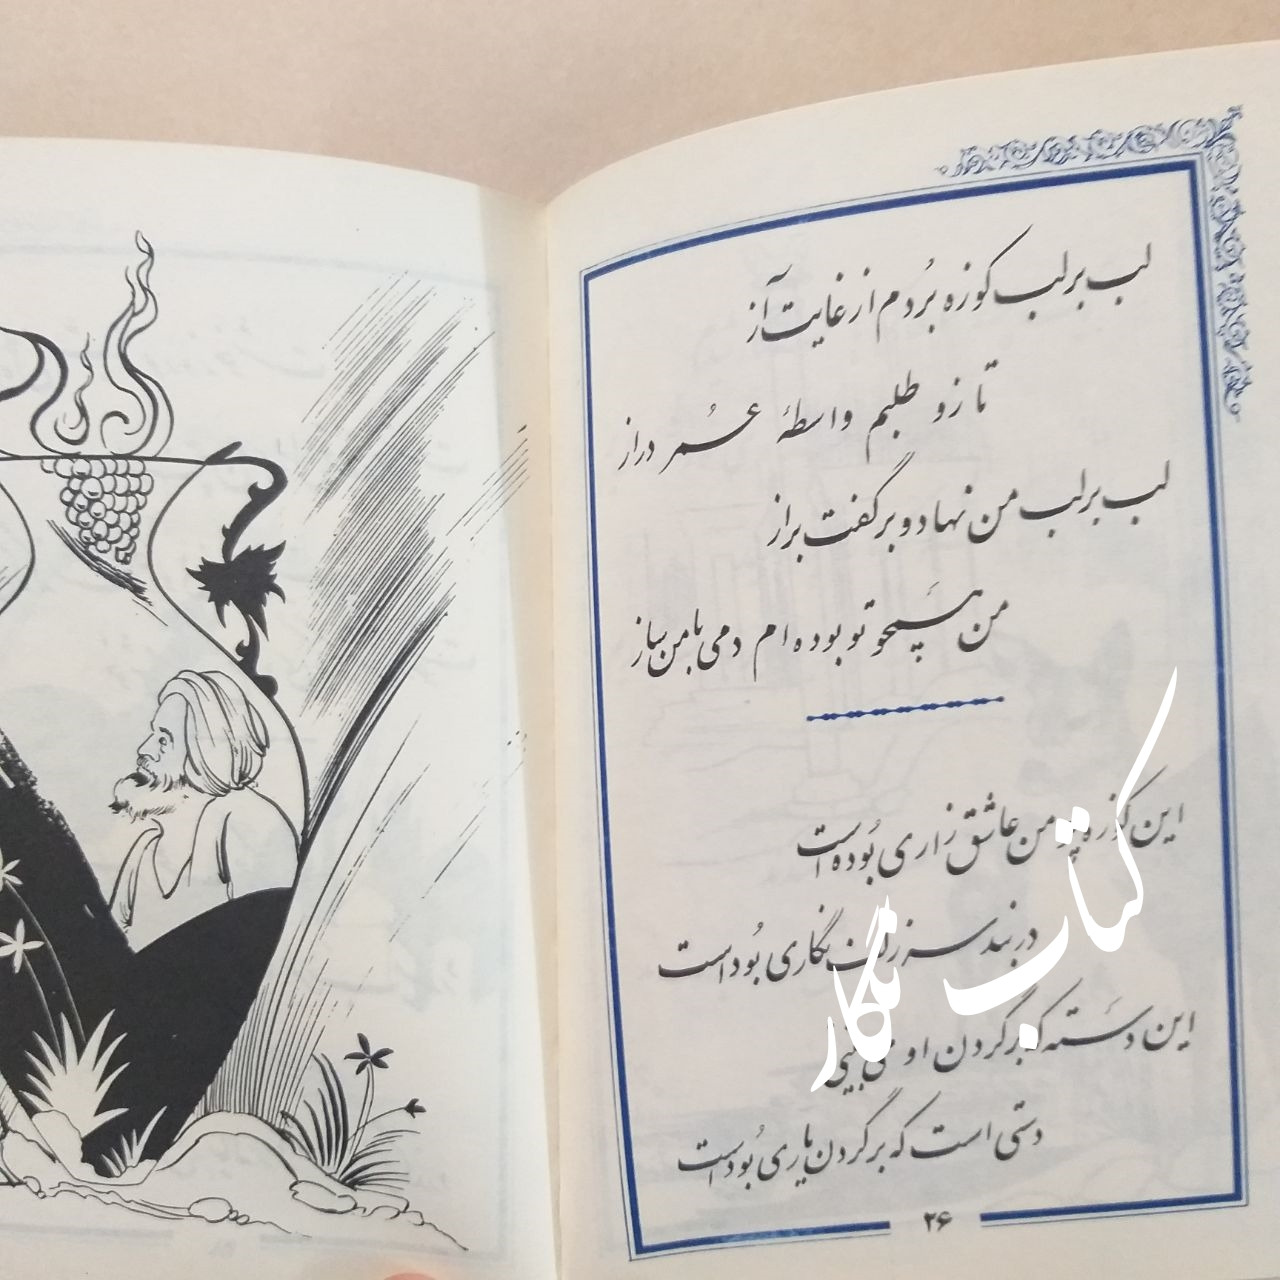 لب بر لب کوزه بُردم از غایت آز
تا زو طلبم واسطهٔ عُمر دراز
لب بر لب من نهاد و بر گفت براز
من هَمچو تو بوده ام دمی با من بساز
این کوزه چو من عاشق زاری بُوده است
در بند سر زلف نگاری بُوداست
این دَسته که بر گردن او می بینی
دستی است که بر گردن یاری بُوداست
کتاب نگار
۲۶